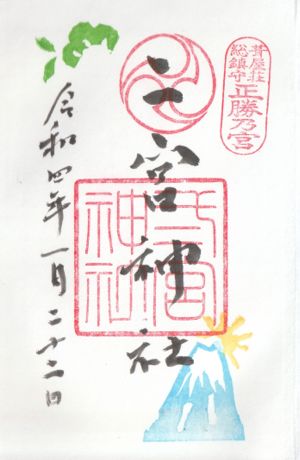 葺屋荘
総鎮守
正勝乃宮
二宮神社
弍宮
神社
令和四年一月二十二日